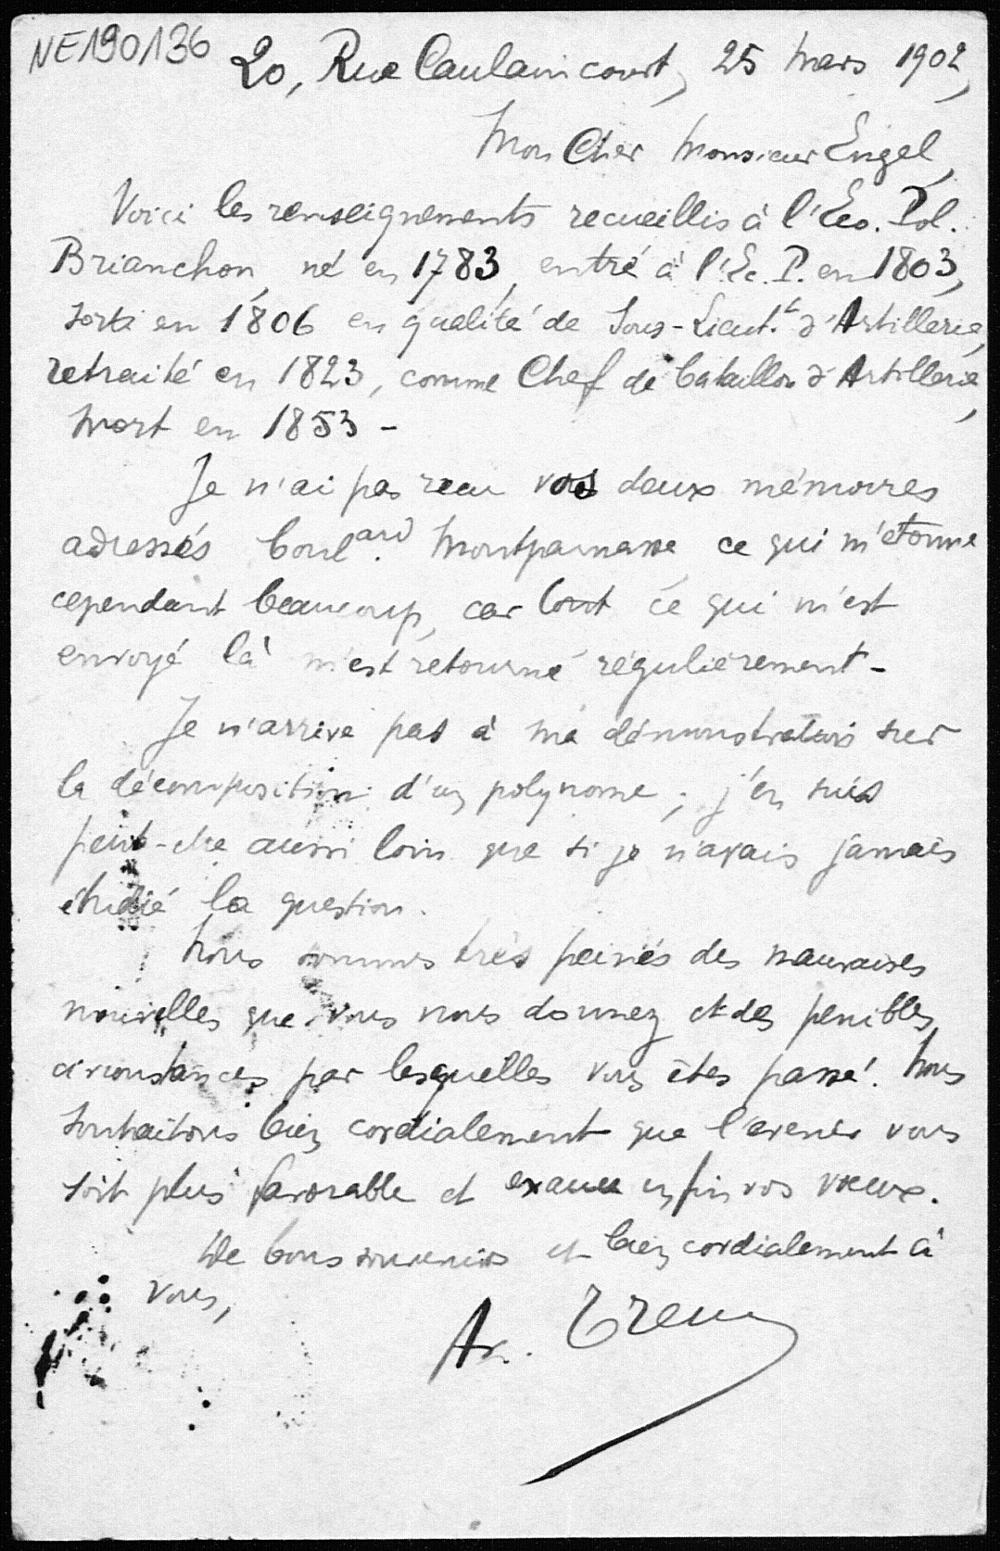 NE190136
20, Rue Caulaincourt, 25 Mars 1902,
Mon Cher Monsieur Engel,
Voici les renseignements recueillis à l'Eco. Pol.
Brianchon, né en 1783, entré à l'Ec. P. en 1803,
sorti en 1806 en qualité de Sous-Lieut.t d'Artillerie,
retraité en 1823, comme Chef de bataillon d'Artillerie,
mort en 1853 -
Je n'ai pas recu vos deux mémoires
adressés boulard. Montparnasse ce qui m'étonne
cependant beaucoup, car tout ce qui m'est
envoyé là m'est retourné régulièrement -
Je n'arrive pas à ma démonstration sur
la décomposition d'un polynome ; j'en suis
peut-être aussi loin que si je n'avais jamais
étudié la question.
Nous sommes très peinés des mauvaises
nouvelles que vous nous donnez et des penibles
circonstances par lesquelles vous êtes passé. Nous
souhaitons bien cordialement que l'avenir vous
soit plus favorable et exauce enfin vos vœux.
De bons souvenirs et bien cordialement à
vous,
Ar.